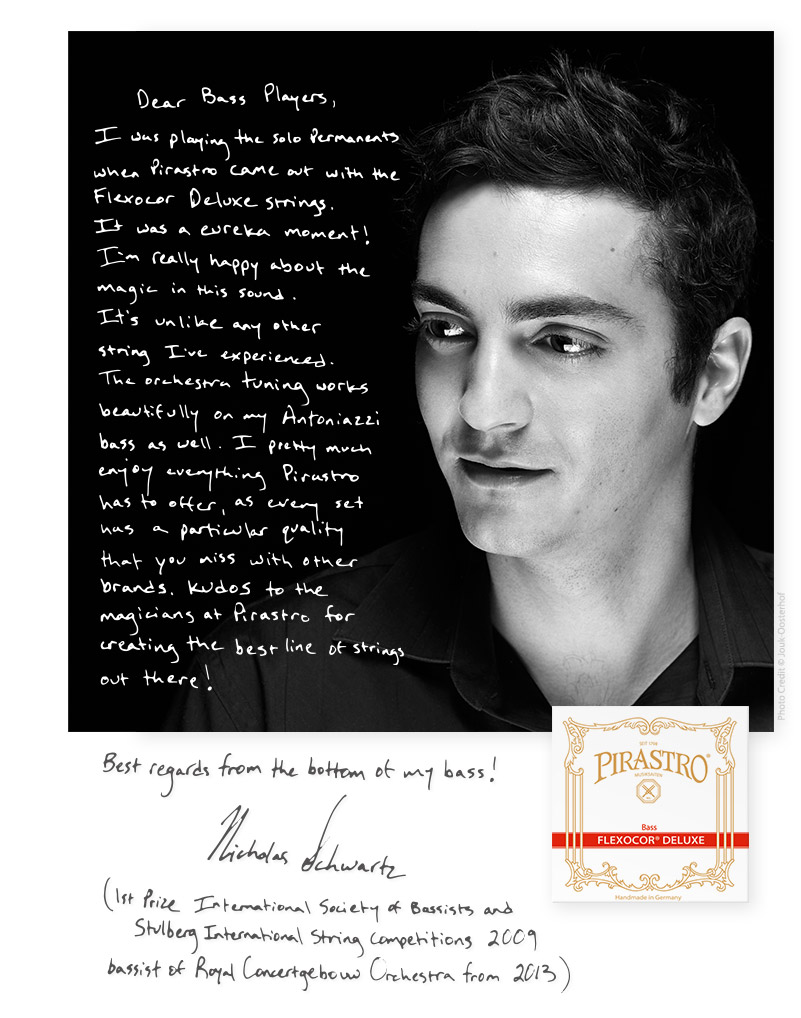 Dear Bass Players,
I was playing the solo Permanents
when Pirastro came out with the
Flexocor Deluxe strings.
It was a eureka moment!
I'm really happy about the
magic in this sound.
It's unlike any other
string I've experienced.
The orchestra tuning works
beautifully on my Antoniazzi
bass as well. I pretty much
enjoy everything Pirastro
has to offer, as every set
has a particular quality
that you miss with other
brands. Kudos to the
magicians at Pirastro for
creating the best line of strings
out there!
Photo Credit © Jouk Oosterhof
Best regards from the bottom of my bass!
Nicholas Schwartz
(1st Prize International Society of Bassists and
Stulberg International String Competitions 2009
bassist of Royal Concertgebouw Orchestra from 2013)
SEIT 1798
PIRASTRO®
MUSIKSAITEN
Bass
FLEXOCOR® DELUXE
Handmade in Germany